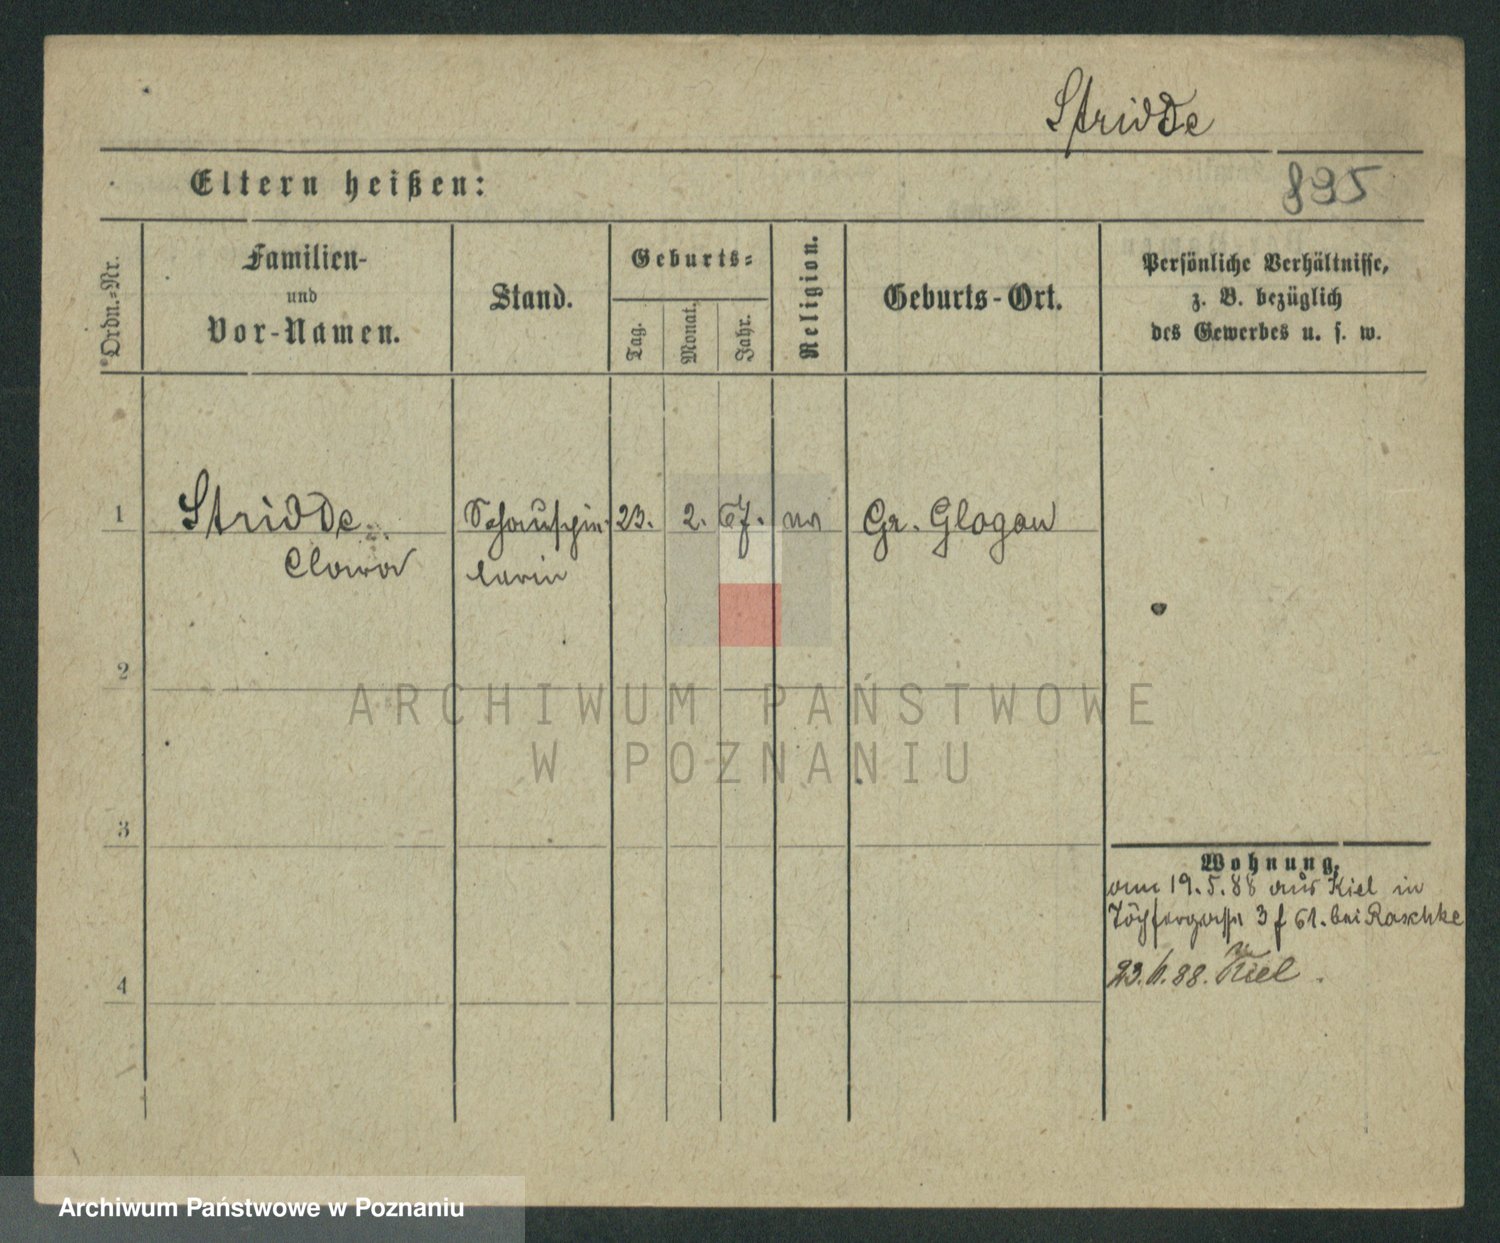 Stridde
Eltern heißen:
895
Ordn.-Nr.
Familien-
und
Vor-Namen.
Stand.
Geburts-
Tag.
Monat.
Jahr.
Religion.
Geburts-Ort.
Persönliche Verhältnisse,
z. B. bezüglich
des Gewerbes u. s. w.
1 Stridde Schauspie- 23. 2. 67. Gr. Glogau
Clara lerin
2
3
4
Wohnung.
am 19.5.88 aus Kiel in
Töpfergasse 3 f 61. bei Raschke
23.6.88. Kiel.
ARCHIWUM PAŃSTWOWE
W POZNANIU
Archiwum Państwowe w Poznaniu